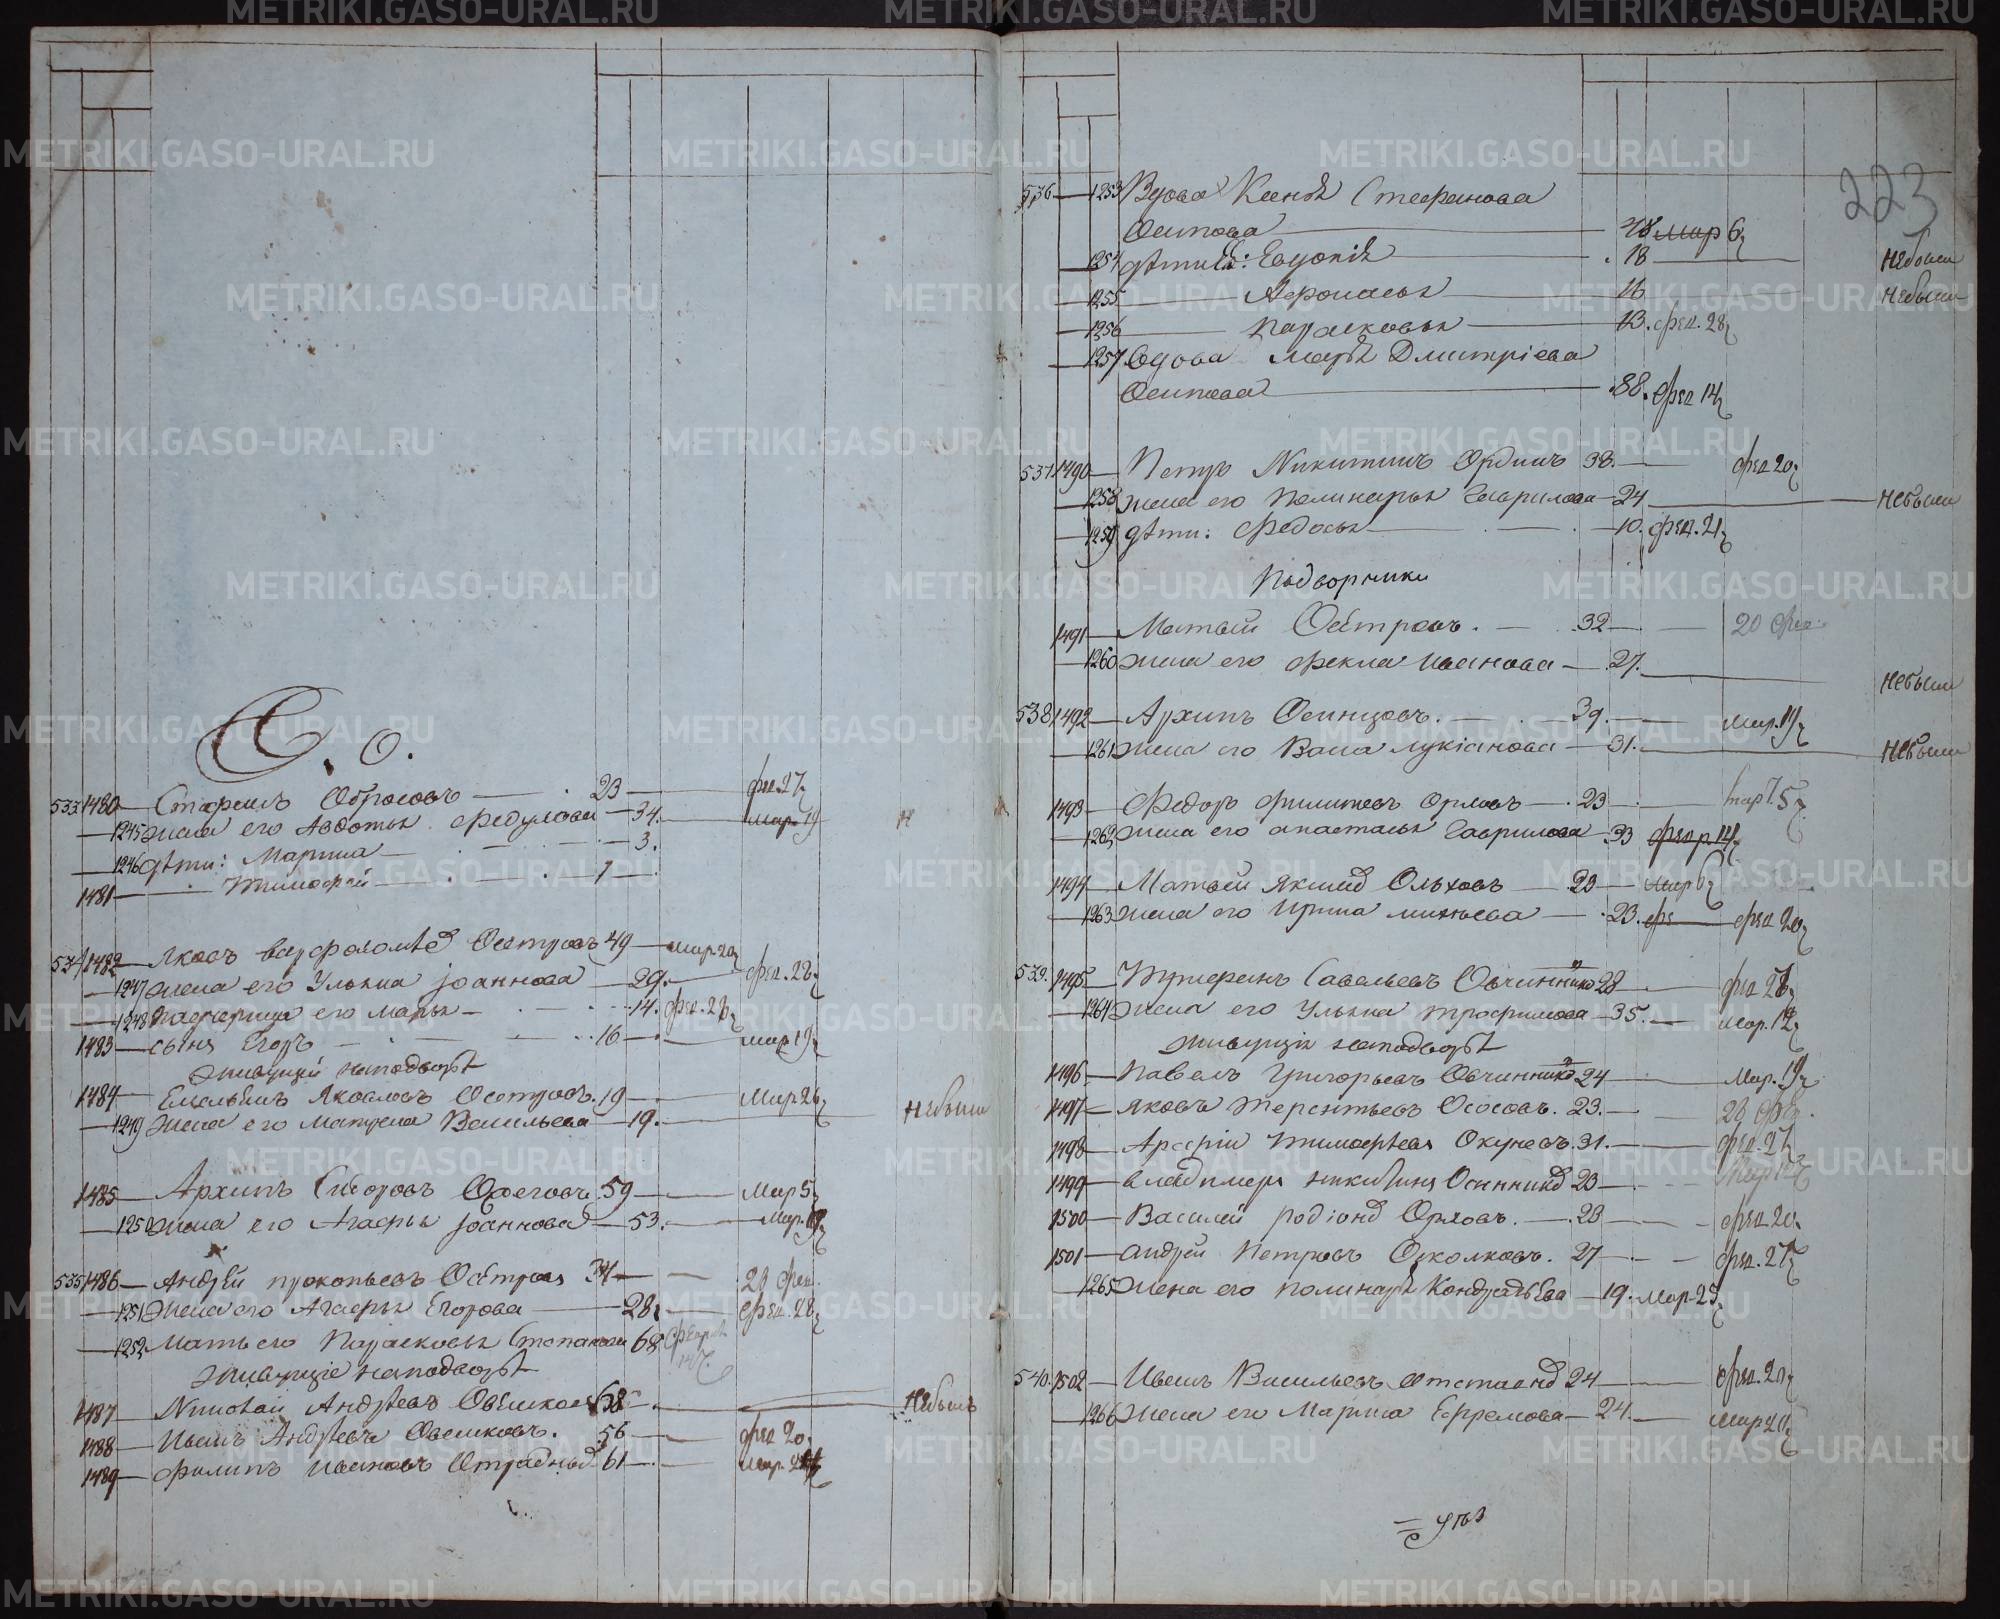 О. о.
533 1480 Стефанъ Обросовъ 23 фев. 27
1245 жена его Авдотья Федулова 34. мар 19 н
1246 дѣти: Марина 3.
1481 Тимофей 1
534 1482 Яковъ Варфоломѣе Осетровъ 49 мар 20
1247 жена его Улькна Іоаннова 29. фев. 28
1248 падчерица его Марья 14. фев. 28
1483 сынъ Егоръ 16 мар 19
живущей наподворьѣ
1484 Емельянъ Яковлевъ Осетровъ. 19 Мар 26
1249 жена его Матрена Васильева 19. небыли
1485 Архипъ Сидоровъ 59 Мар 5
1250 жена его Агафья Іоаннова 53. Мар. 19
535 1486 Андрей Прокопьевъ Осетровъ 34 20 фев.
1251 жена его Агафья Егорова 28 фев. 28
1252 мать его Парасковья Степанова 68 Феврал 14
живущіе наподворьѣ
1487 Николай Андрѣевъ 68 небылъ
1488 Иванъ Андрѣевъ Овсяковъ. 56 фев 20
1489 Филипъ Ивановъ Отрадный 61 мар.
223
536 1253 Вдова Ксенья Стефанова
Осипова 48 мар 6
1254 дѣти Ея: Евдокія 18 небыли
1255 Афонасья 16 небыли
1256 Парасковья 13. фев. 28
1257 Вдова Марья Дмитріева
Осипова 88. фев 14
537 1490 Петръ Никитинъ Ординъ 38. фев 20
1258 жена его Полинарья Гаврилова 24 небыли
1259 дѣти: Федосья 10. фев. 21
Подворники
1491 Матвей Осетровъ. 32 20 фев.
1260 жена его Фекла Иванова 27. небыли
538 1492 Архипъ Осинцовъ. 39. мар. 19
1261 жена его Васса Лукіанова 31. небыли
1493 Федоръ Филиповъ Орловъ 23 мар 15
1262 жена его Анастасья Гаврилова 33 февр. 14
1494 Матвей Якимо Ольховъ 23 мар 6
1263 жена его Ирина Минѣева 23. фе фев 20
539. 1495 Трифонъ Савельевъ Овчинниковъ 28 фев 28
1264 жена его Улькна Трофимова 35. мар. 12
живущія наподворьѣ
1496 Павелъ Григорьевъ Овчинниковъ 24 Мар. 19
1497 Яковъ Терентьевъ Ососовъ. 23. 28 фев.
1498 Арефій Тимофѣевъ Окуневъ 31. фев. 27
1499 Владимеръ Никитинъ 23
1500 Василей Родіоно Орловъ. 23 фев 20.
1501 Андрей Петровъ Осколковъ. 27 фев. 27
1265 жена его Полинарья Кондратьева 19. мар 25
540. 1502 Иванъ Васильевъ 24 фев. 20
1266 жена его Марина Ефремова 24. мар 20